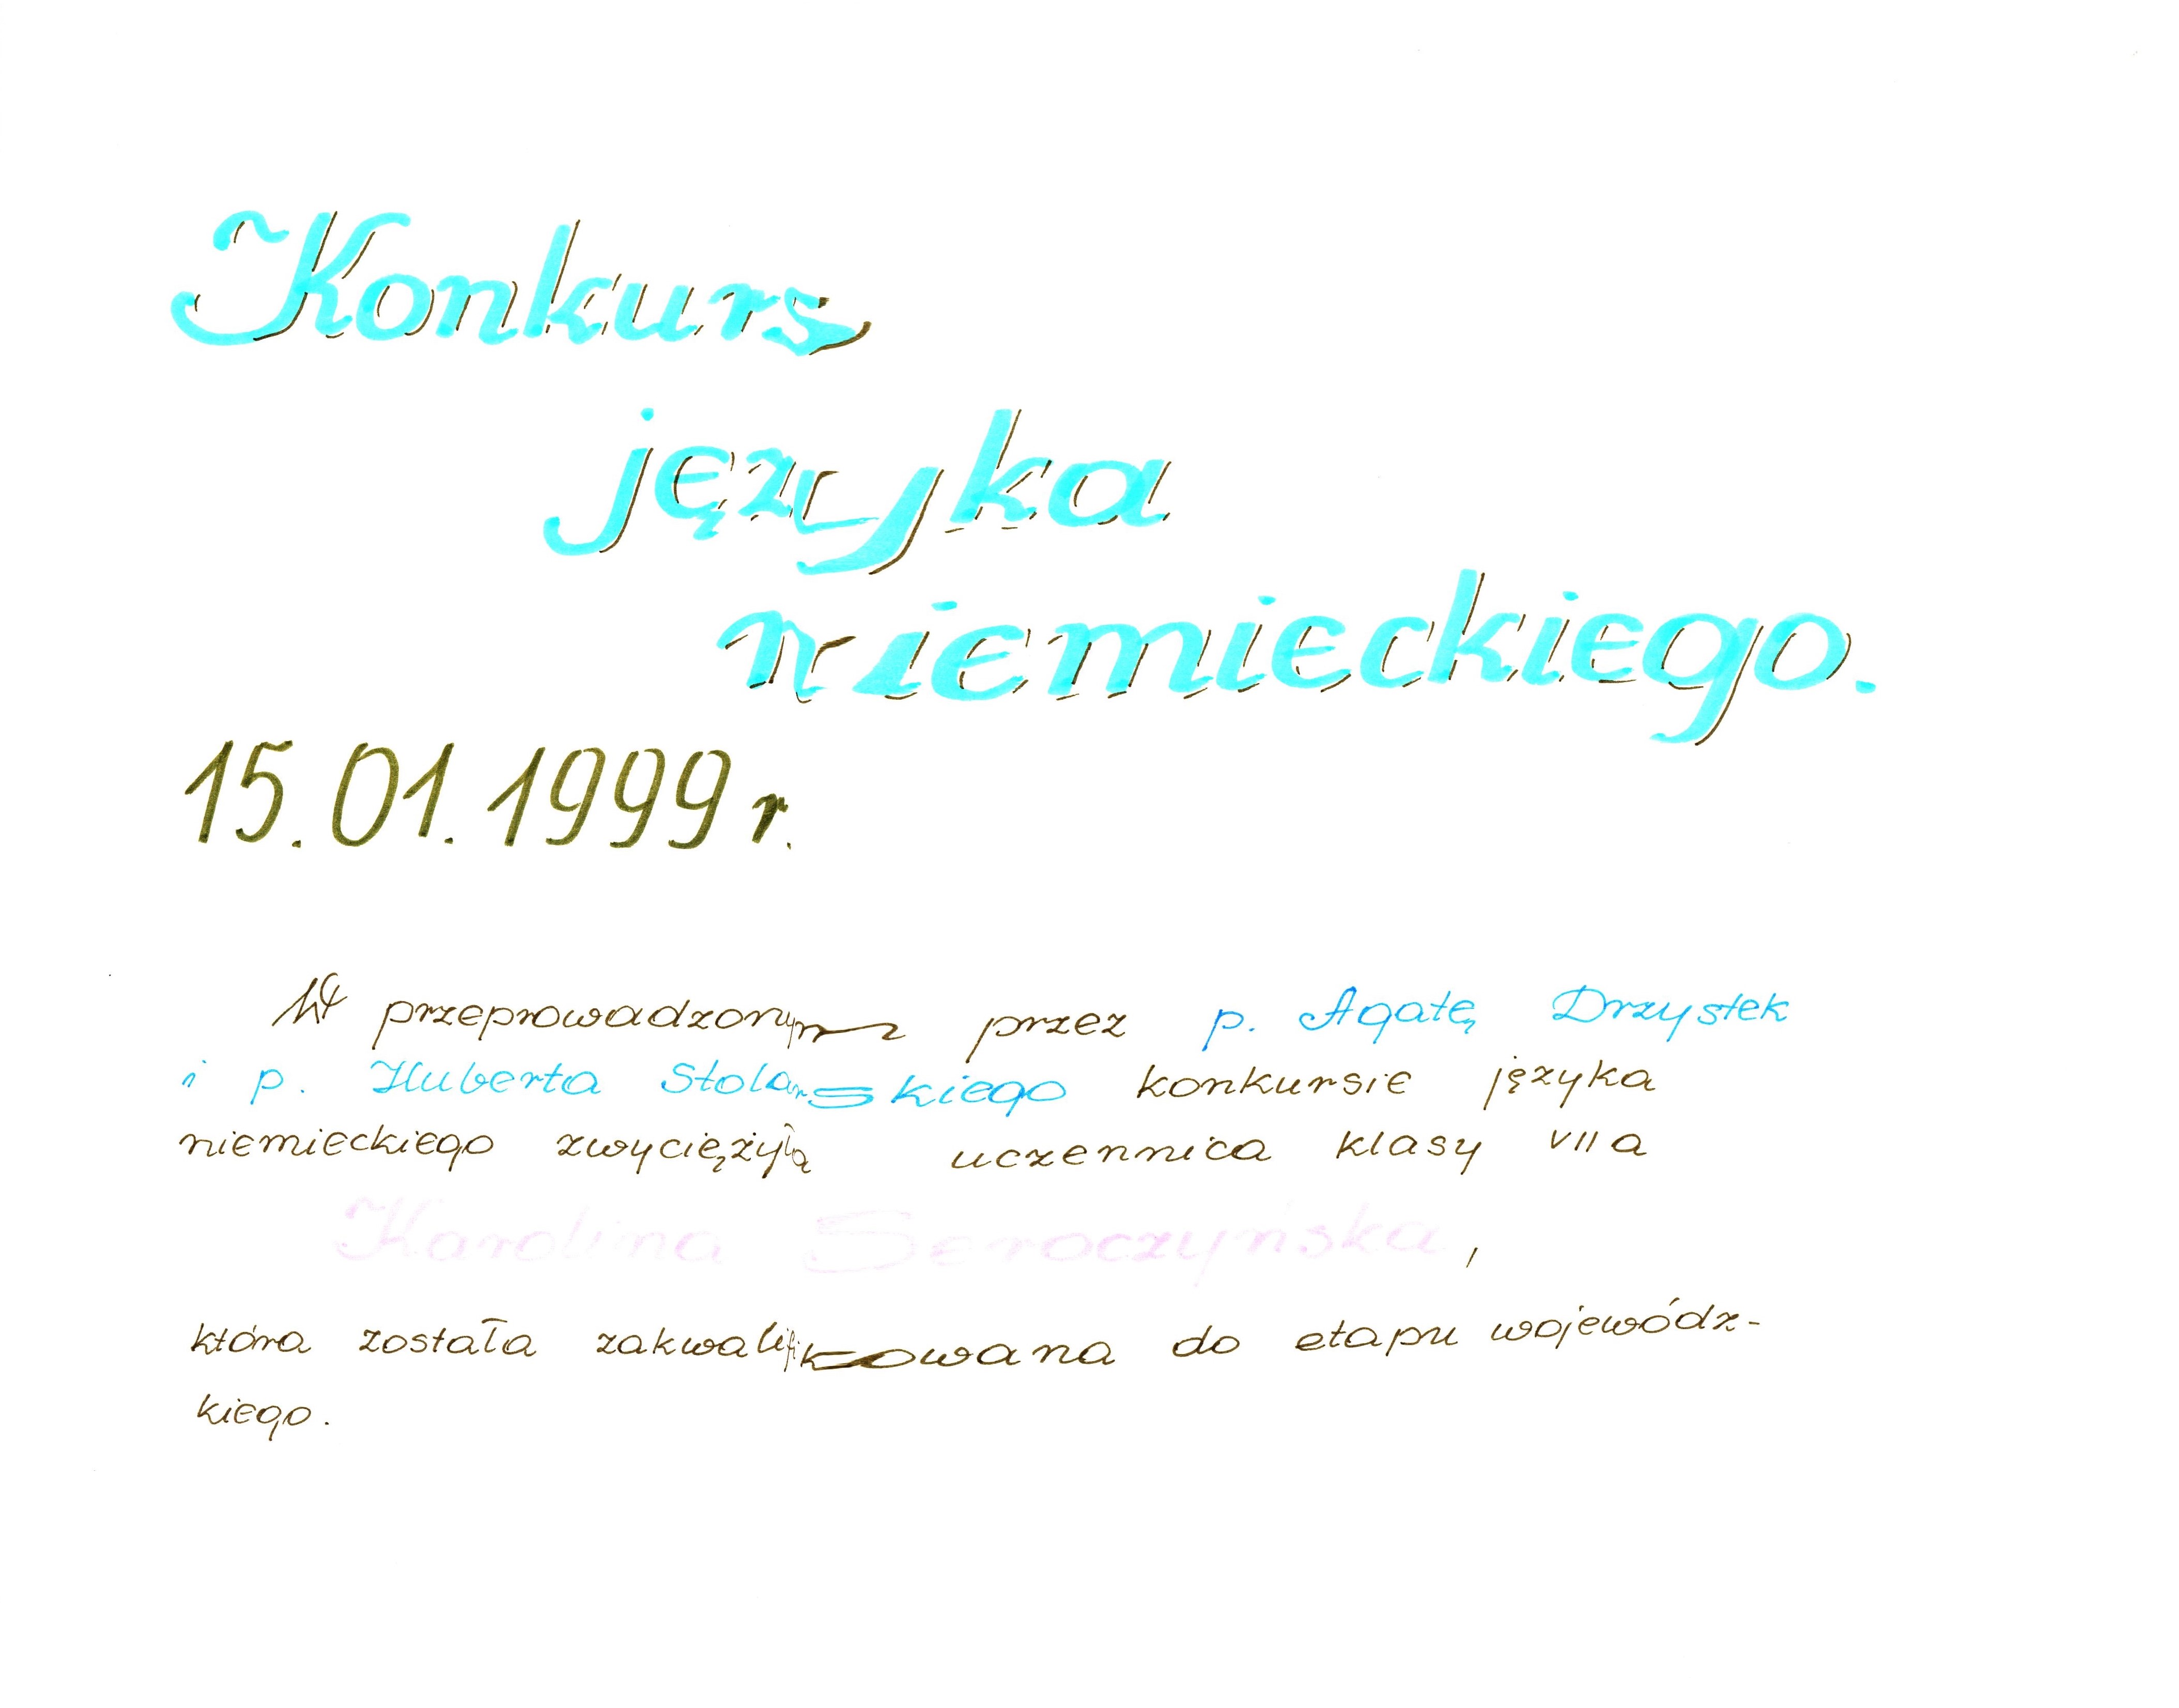 Konkurs
języka
niemieckiego.
15.01.1999 r.
W przeprowadzonym przez p. Agatę Drzystek
i p. Huberta Stolarskiego konkursie języka
niemieckiego zwyciężyła uczennica klasy VII a
Karolina Seroczyńska,
która została zakwalifikowana do etapu wojewódz-
kiego.